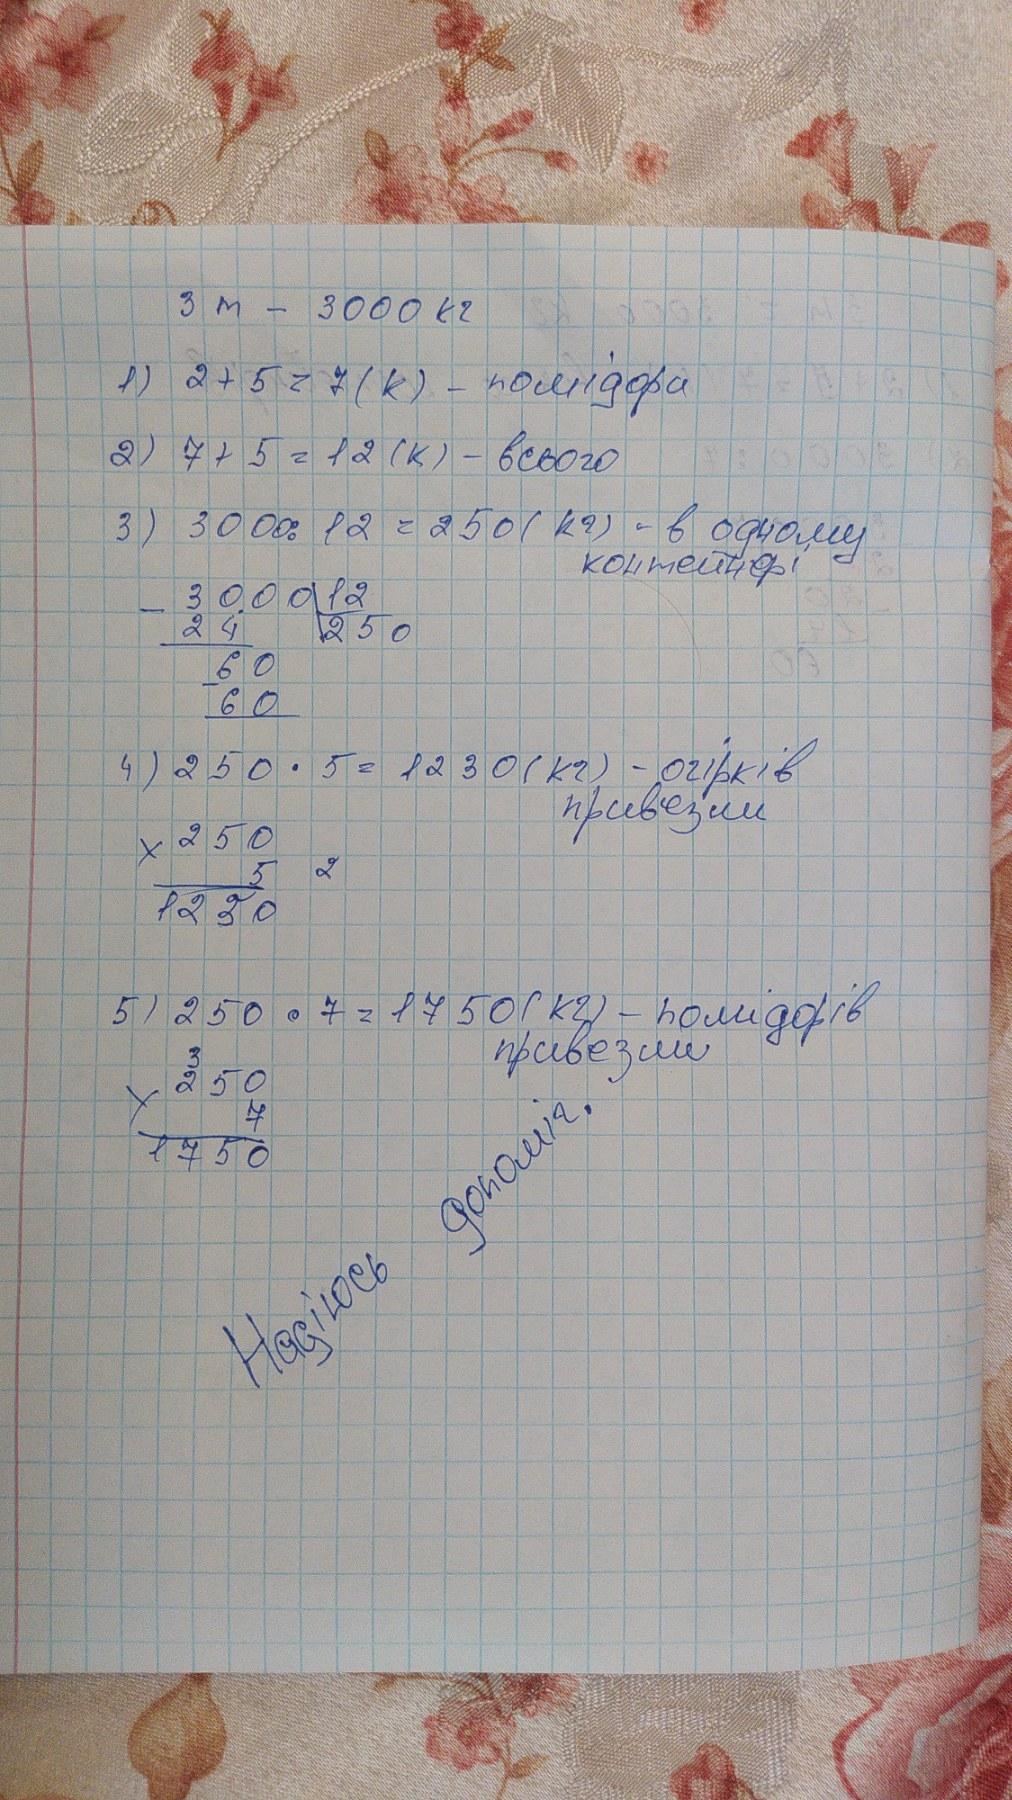 3 т – 3000 кг
1) 2 + 5 = 7 (к) – помідори
2) 7 + 5 = 12 (к) – всього
3) 3000 : 12 = 250 (кг) – в одному
контейнері
– 3000 | 12
24 250
60
– 60
4) 250 · 5 = 1230 (кг) – огірків
привезли
× 250
5 2
1230
5) 250 · 7 = 1750 (кг) – помідорів
привезли
3
× 250
7
1750
Надіюсь допоміг.